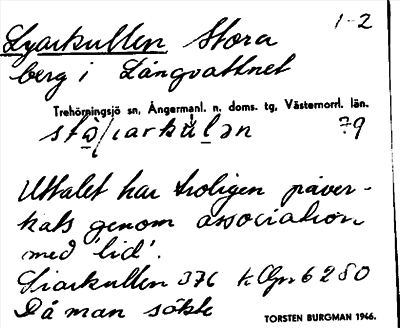 Lyarkullen Stora 1-2
berg i Långvattnet
Trehörningsjö sn, Ångermanl. n. doms. tg, Västernorrl. län.
79
Uttalet har troligen påver-
kats genom association
med 'lid'.
Liarkullen 376 k. 6280
Då man sökte
TORSTEN BURGMAN 1946.